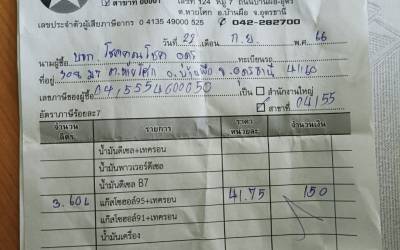 สาขาที่ 00001 เลขที่ 124 หมู่ 7 ถนนบ้านผือ-อุดร
ต.หายโศก อ.บ้านผือ จ.อุดรธานี
เลขประจำตัวผู้เสียภาษีอากร 0 4135 49000 525 042-282700
วันที่ 29 เดือน ก.ย. พ.ศ. 66
นามผู้ซื้อ บจก. อุดร ทะเบียนรถ
ที่อยู่ ต.หายโศก อ.บ้านผือ จ.อุดรธานี 41160
เลขภาษีของผู้ซื้อ เป็น สำนักงานใหญ่
อัตราภาษีร้อยละ7 สาขาที่ 04155
จำนวนลิตร รายการ ราคาหน่วยละ จำนวนเงิน
น้ำมันดีเซล+เทครอน
น้ำมันพาวเวอร์ดีเซล
น้ำมันดีเซล B7
3.60L แก๊สโซฮอล์95+เทครอน 41.75 150
แก๊สโซฮอล์91+เทครอน
น้ำมันเครื่อง